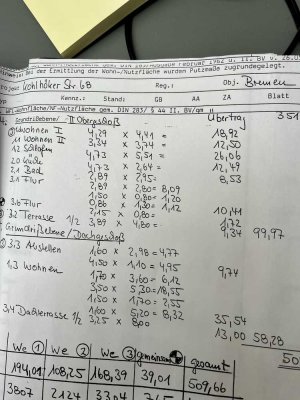 Bei der Ermittlung der Wohn-/Nutzfläche wurden Putzmaße zugrundegelegt.
Kohlhöker Str. 68 Reg.: Obj. Bremen
Kennz.: Stand: GB AA ZA Blatt
Wohnfläche/NF=Nutzfläche gem. DIN 283/ § 44 II. BV/qm
Grundrißebene/ II Obergeschoß Übertrag 351
Wohnen I 4,29 × 4,41 = 18,92
1.1 Wohnen II 3,34 × 3,74 = 12,50
1.2 Schlafen 4,73 × 5,51 = 26,06
2.0 Küche 4,73 × 2,64 = 12,49
2.1 Bad 2,89 × 2,95 = 8,53
3.1 Flur 2,89 × 2,80 = 8,09
1,50 × 0,80 = 1,20
0,86 × 1,30 = 1,12
3.6 Flur 2,15 × 0,80 = 10,41
3.2 Terrasse 1/2 3,89 × 4,80 = 1,72
9,34 99,97
Grundrißebene/Dachgeschoß
3.3 Abstellen 1,60 × 2,98 = 4,77
4,50 × 1,10 = 4,95 9,74
1.3 Wohnen 1,70 × 3,60 = 6,12
3,50 × 5,30 = 18,55
1,50 × 1,70 = 2,55
1,60 × 5,20 = 8,32 35,54
3.4 Dachterrasse 1/2 3,25 × 8,00 13,00 58,28
We 1 We 2 We 3 gemeinsam gesamt
194,01 108,25 168,39 39,01 509,66
3807 2124 3304